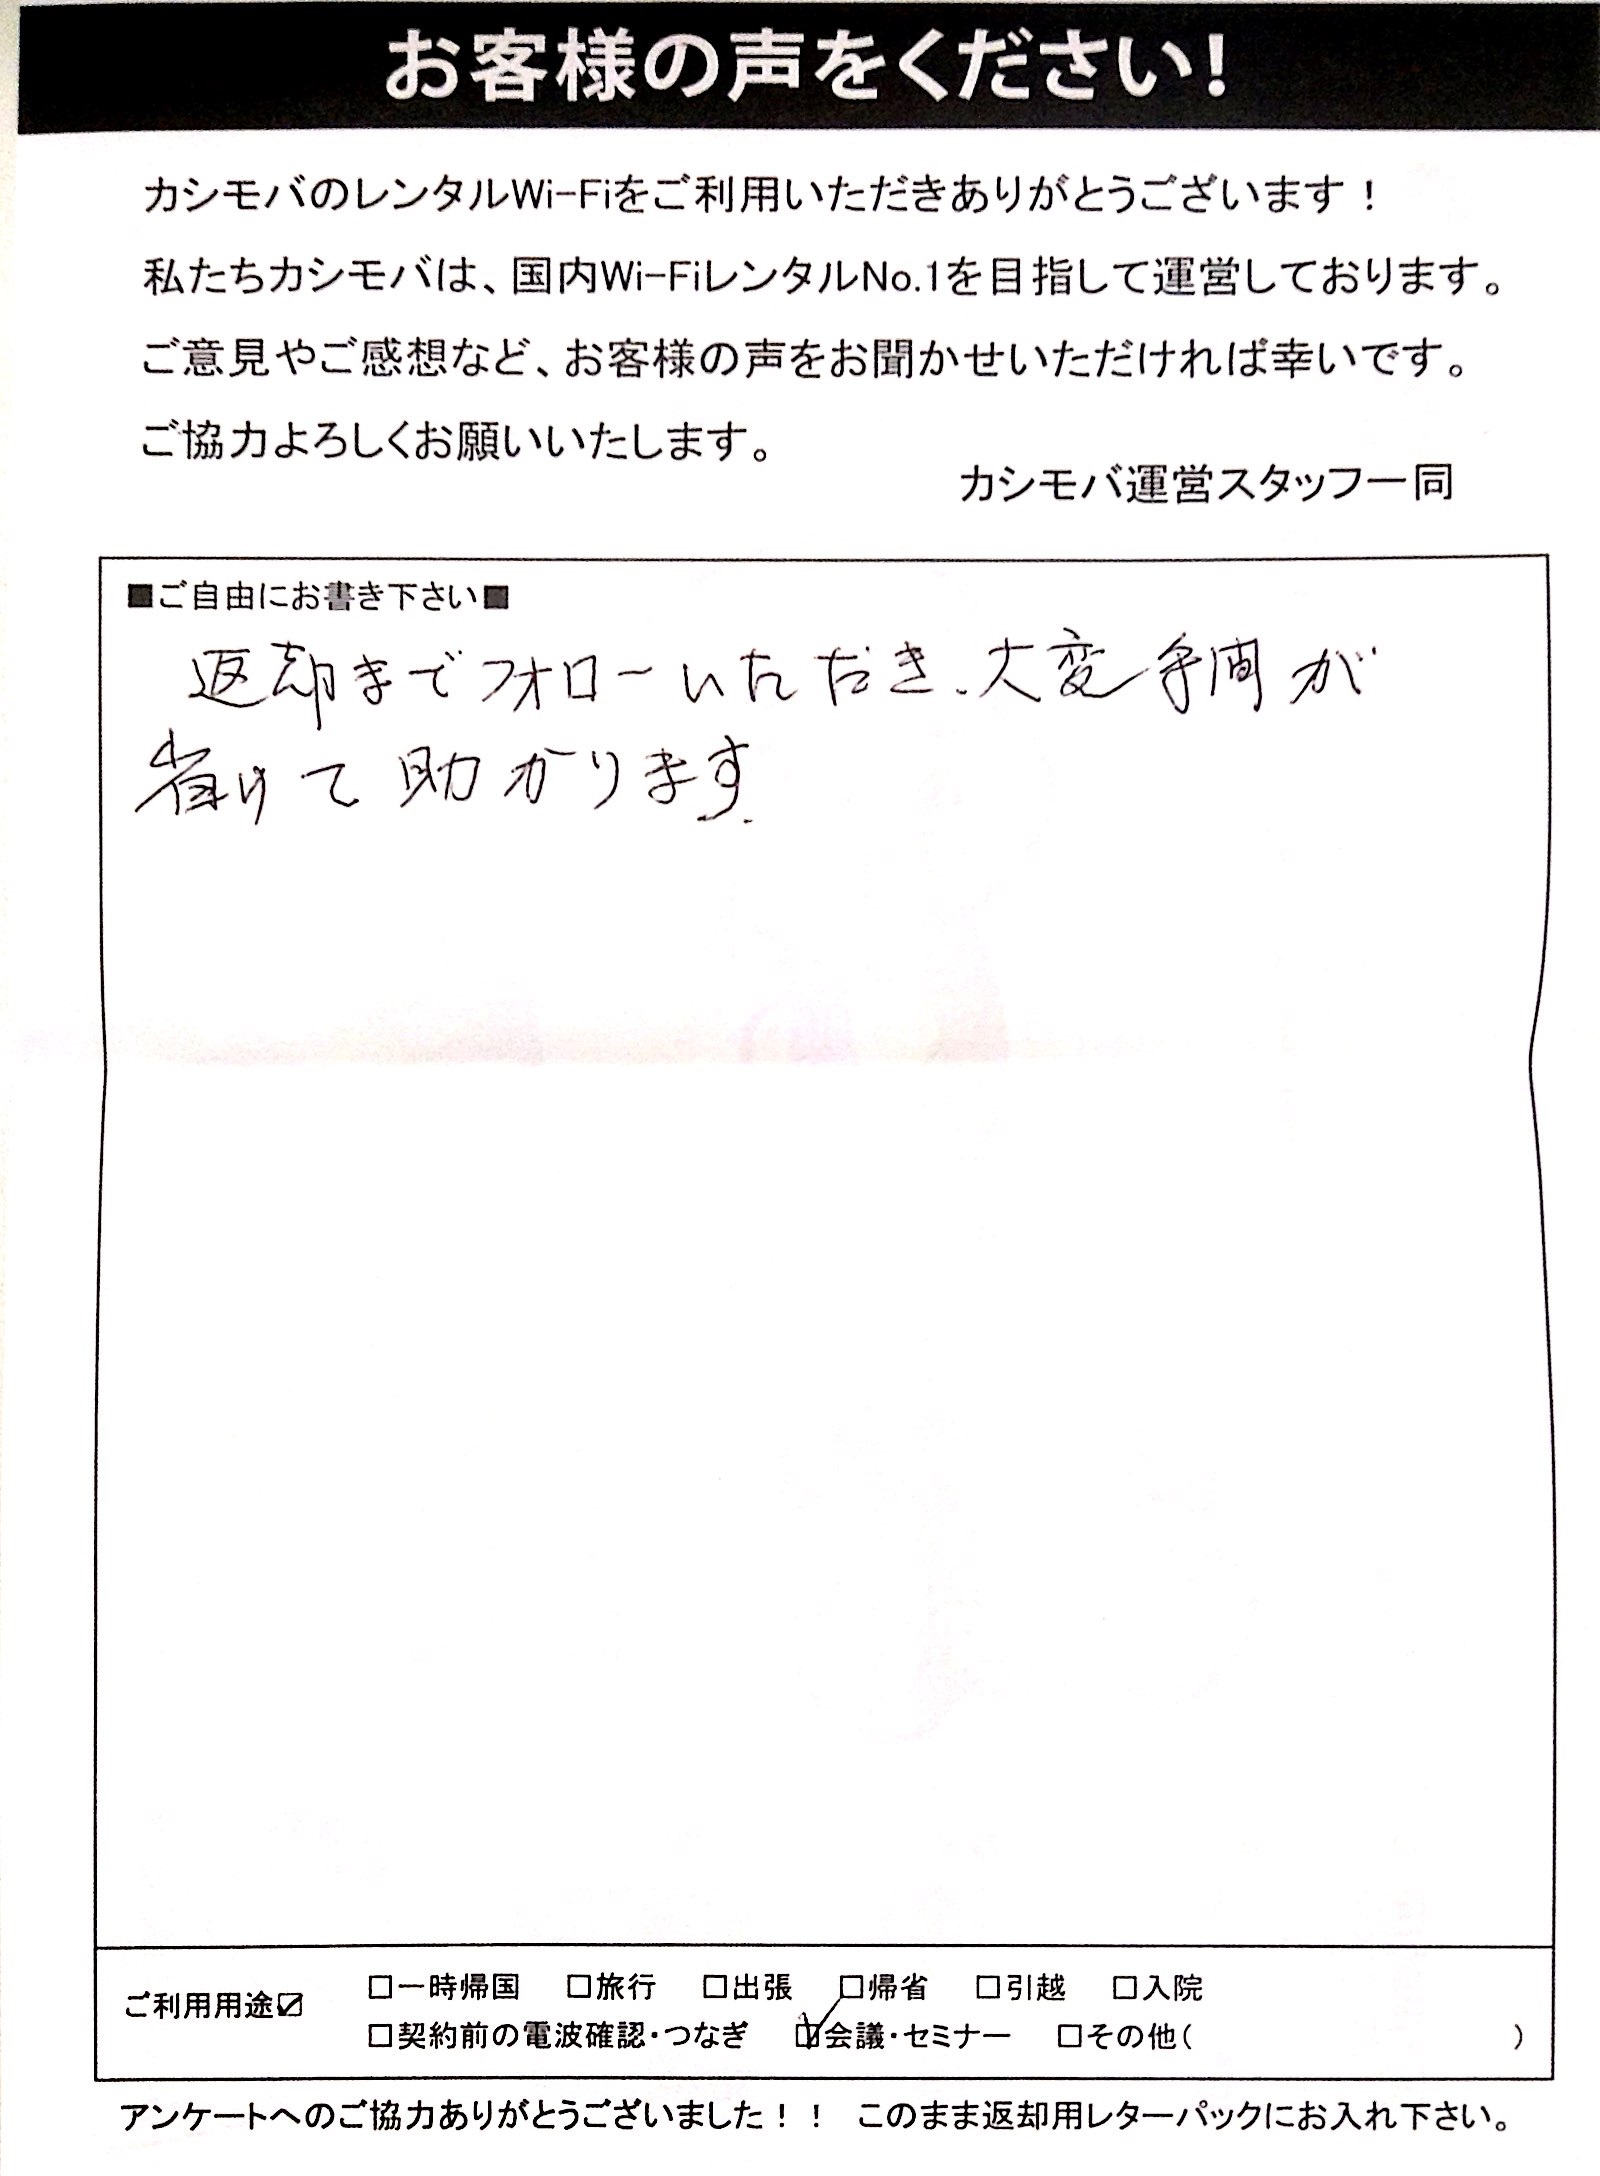 お客様の声をください!
カシモバのレンタルWi-Fiをご利用いただきありがとうございます！
私たちカシモバは、国内Wi-FiレンタルNo.1を目指して運営しております。
ご意見やご感想など、お客様の声をお聞かせいただければ幸いです。
ご協力よろしくお願いいたします。
カシモバ運営スタッフ一同
■ご自由にお書き下さい■
返却までフォローいただき、大変手間が
省けて助かります.
ご利用用途☑ □一時帰国 □旅行 □出張 □帰省 □引越 □入院
□契約前の電波確認・つなぎ ☑会議・セミナー □その他( )
アンケートへのご協力ありがとうございました！！ このまま返却用レターパックにお入れ下さい。